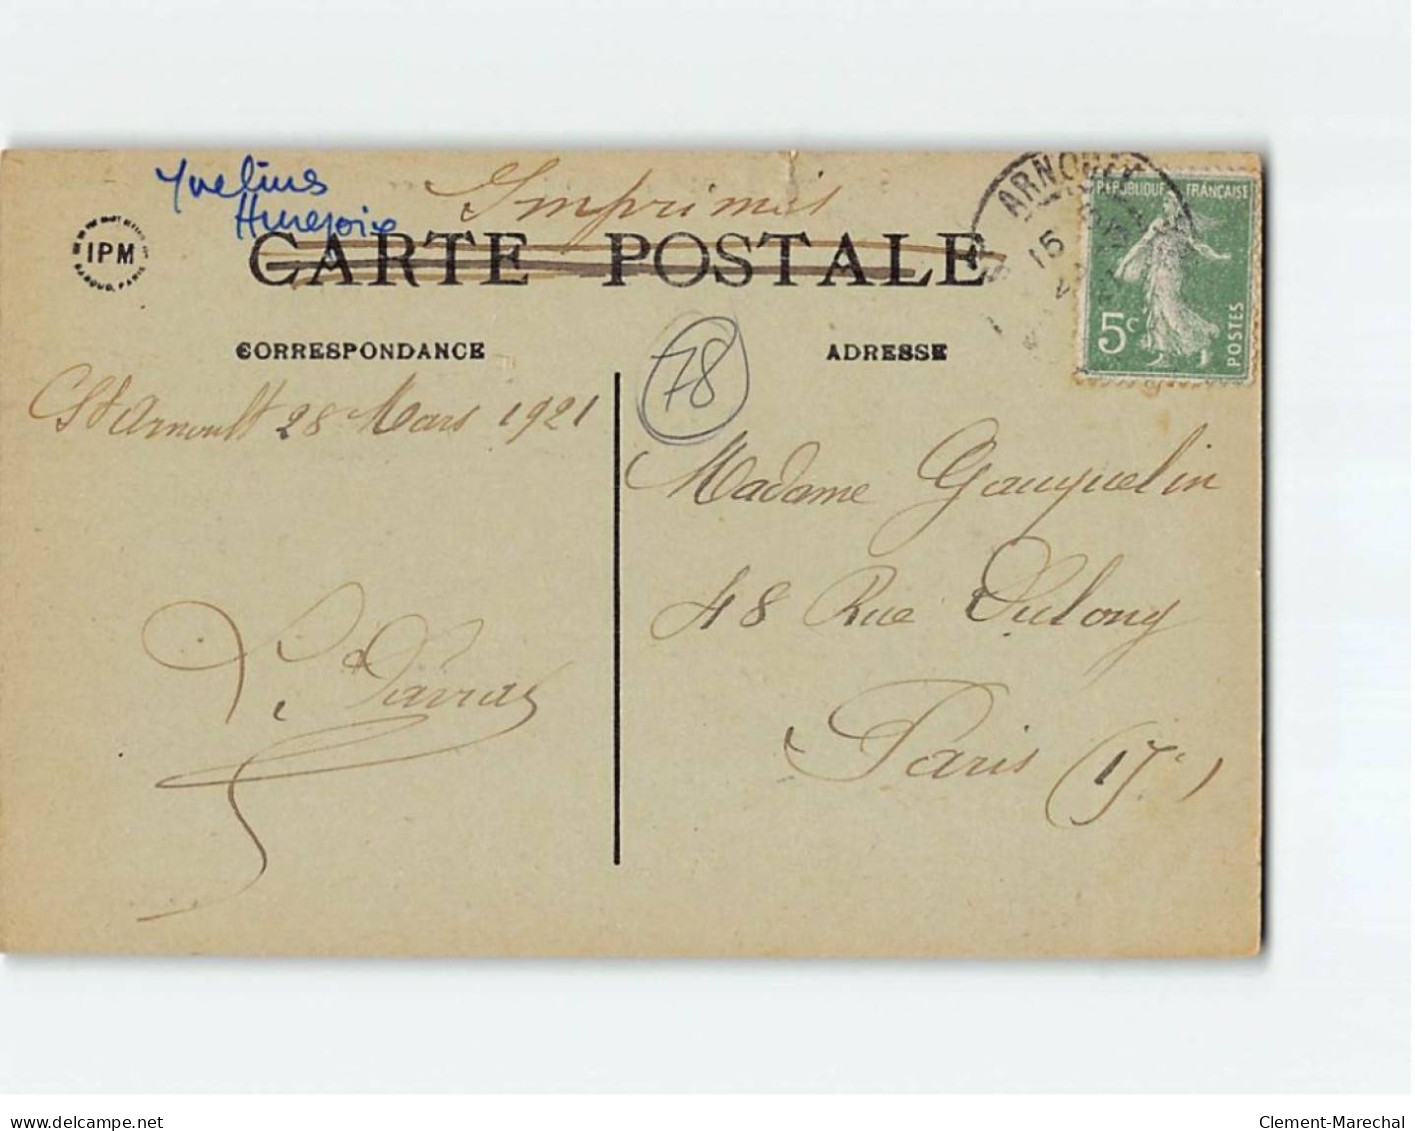 Yvelines
Imprimés
IPM
CARTE POSTALE
CORRESPONDANCE
ADRESSE
ARNOULT
15
RÉPUBLIQUE FRANÇAISE
5c
POSTES
78
St Arnoult 28 Mars 1921
Madame Gauquelin
48 Rue Dulong
Paris (17e)
delcampe.net
Clement-Marechal